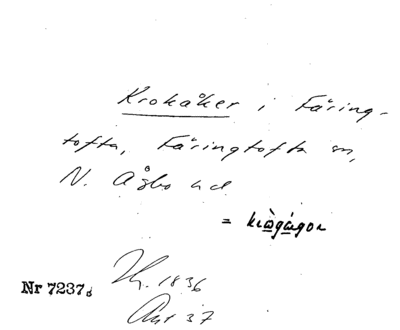 Krokåker i Fåring-
tofta, Fåringtofta sn,
N. Åsbo hd.
= kràgágor
Nr 7237d
1836
37